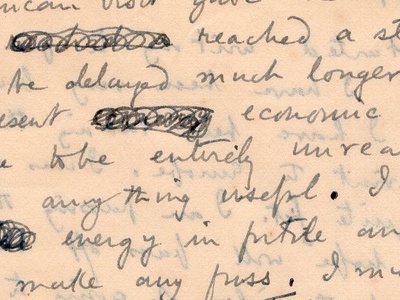 reached a st
be delayed much longer
esent economic
e to be entirely unrea
anything useful. I
energy in futile an
make any fuss. I mu